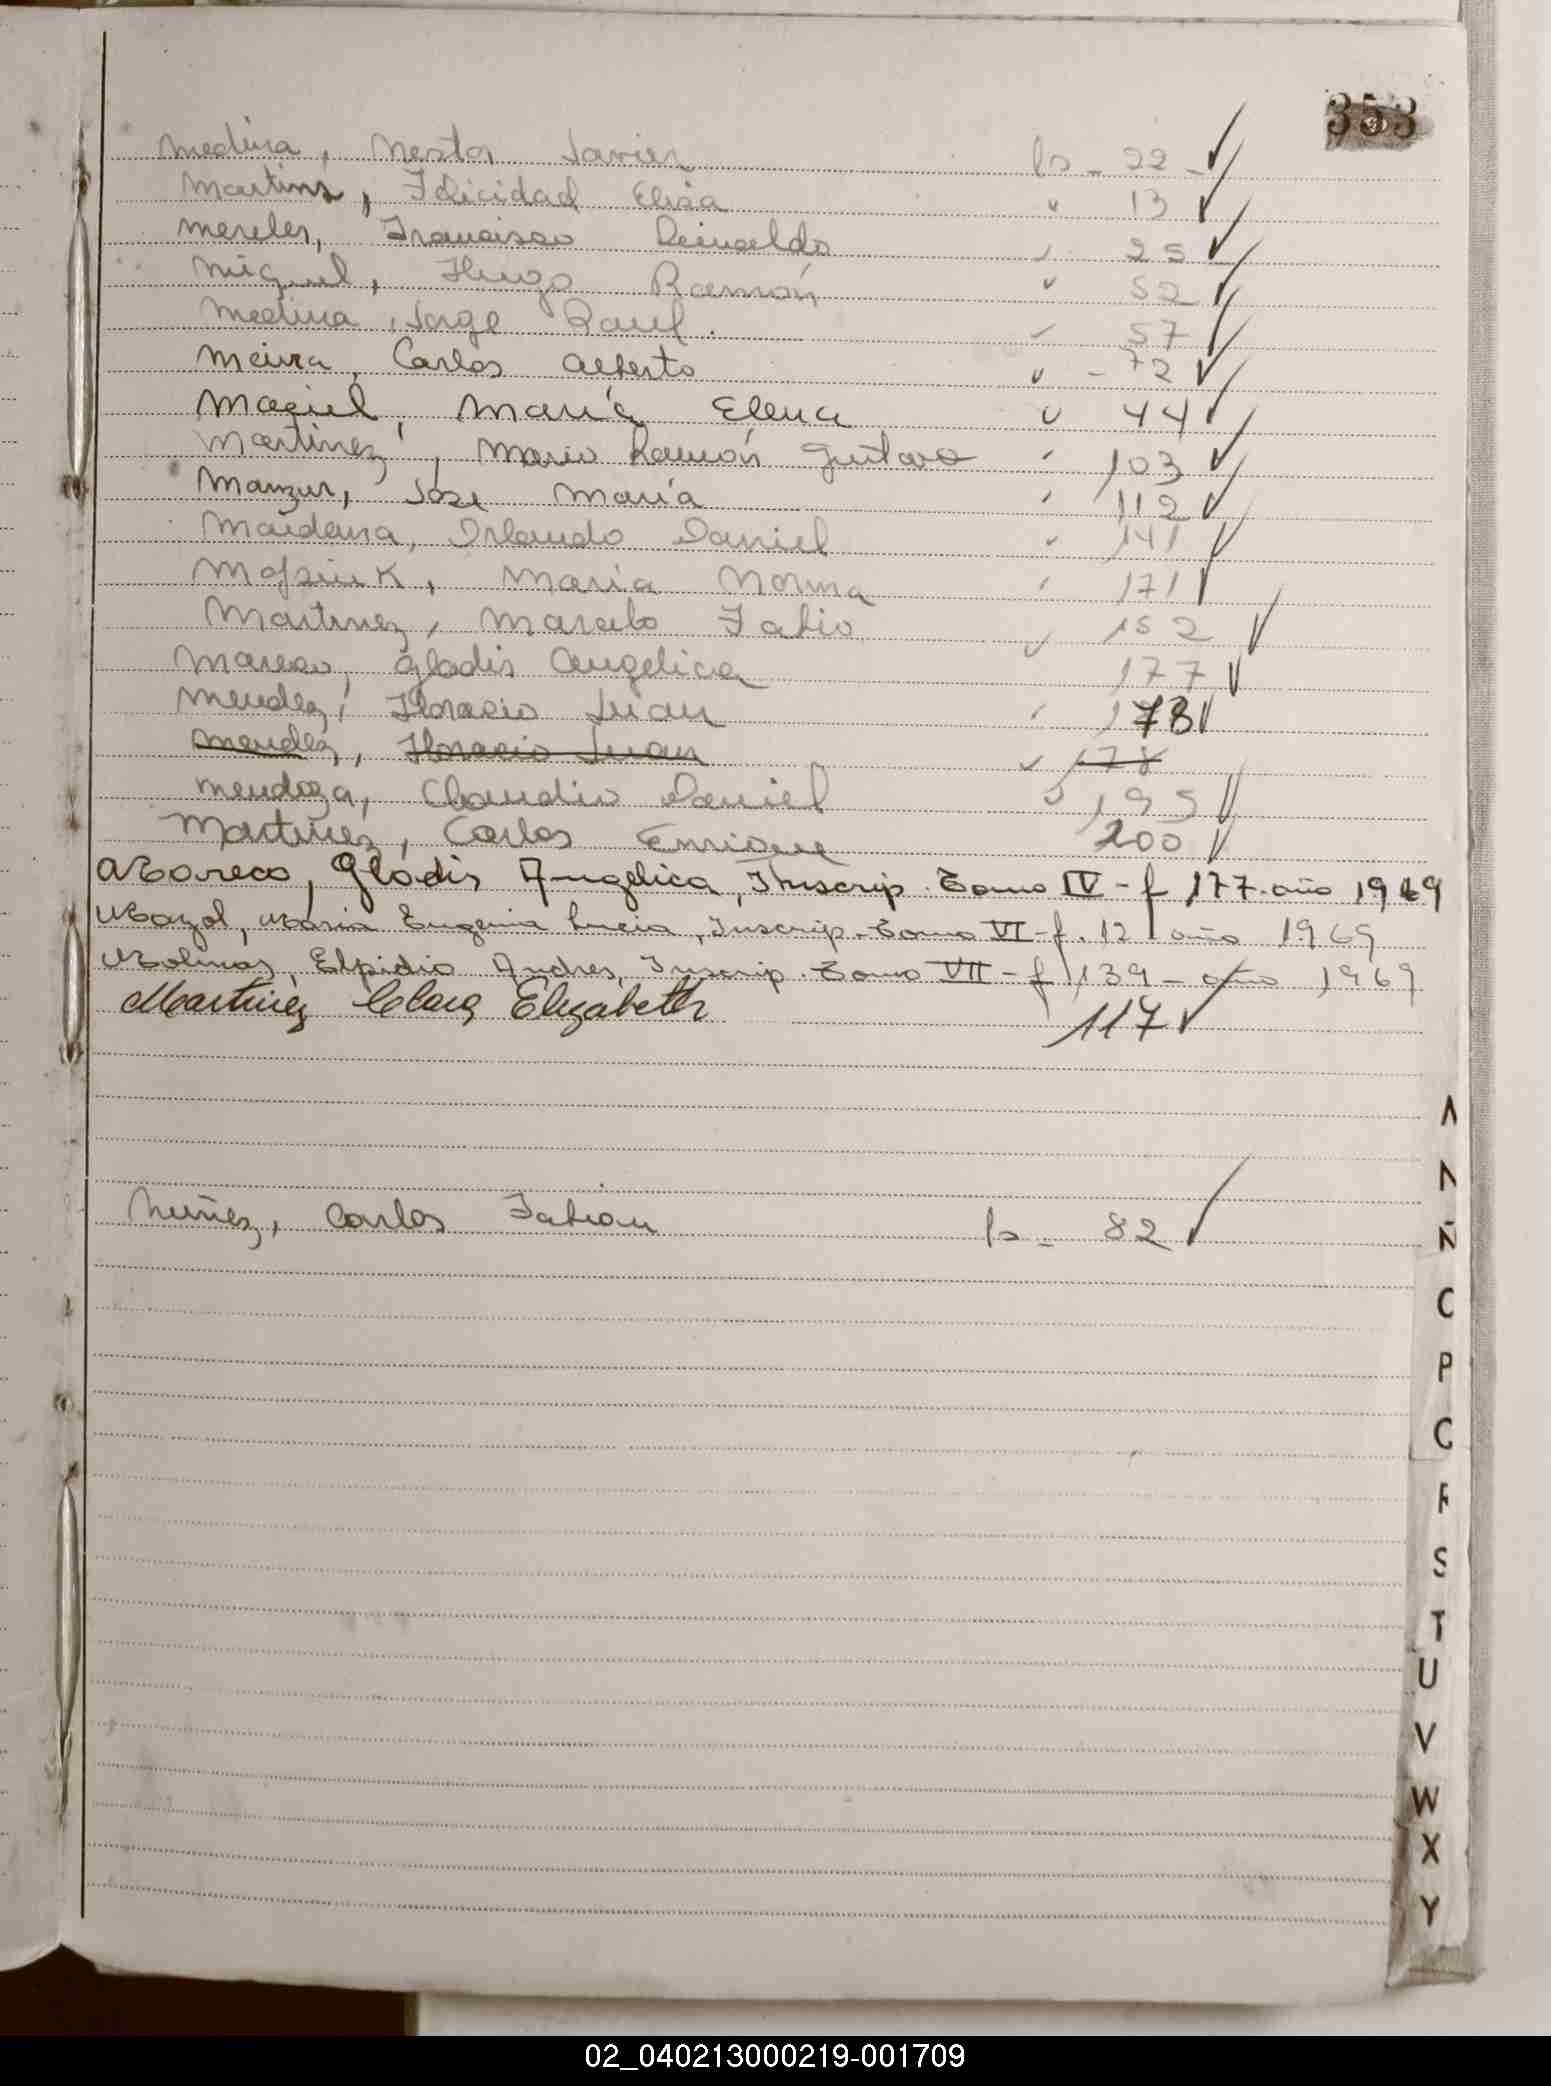 353
Medina, Nestor Javier fs - 22 -
Martins, Felicidad Elisa " 13
Mereles, Francisco Reinaldo " 25
Miguel, Hugo Ramón " 52
Medina, Jorge Raul. " 57
Meira, Carlos Alberto " - 72
Maciel, María Elena " 44
Martinez, Mario Ramón Gustavo " 103
Manzur, Jose María " 112
Maidana, Orlando Daniel " 141
María Norma " 171
Martinez, Marcelo Fabio " 152
Mareco, Gladis Angelica 177
Mendez, Horacio Juan " 178
Mendez, Horacio Juan " 178
Mendoza, Claudio Daniel " 195
Martinez, Carlos Enrique 200
Moreco, Gladis Angelica, Inscrip. Tomo IV - f 177. año 1969
Mazol, Maria Eugenia Lucia, Inscrip. Tomo VI - f. 12 año 1969
Molinas, Elpidio Andres, Inscrip. Tomo VII - f 139 - año 1969
Martinez Clara Elizabeth 117
Nuñez, Carlos Fabian fs - 82
N
Ñ
O
P
Q
R
S
T
U
V
W
X
Y
02_040213000219-001709